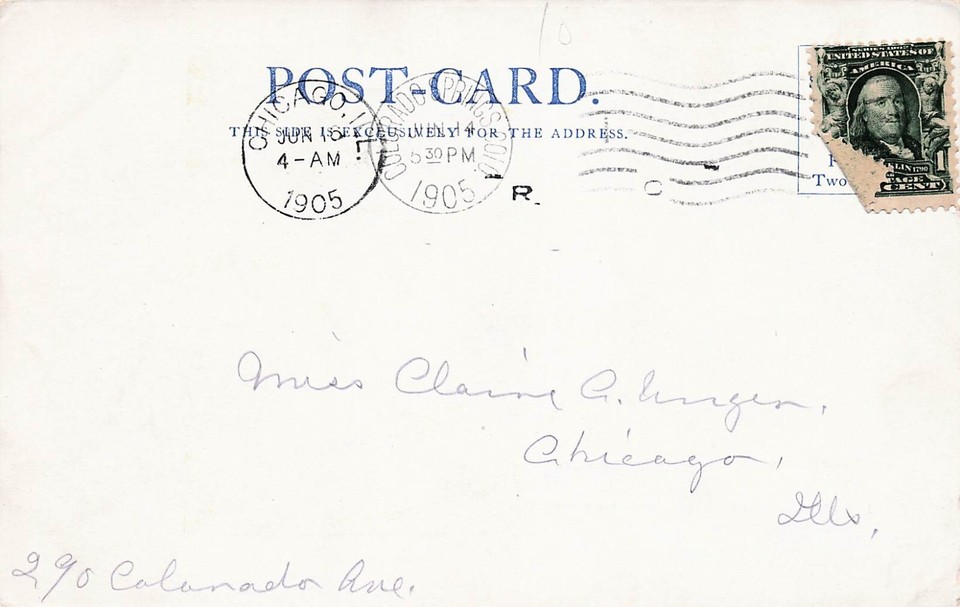 POST-CARD.
THIS SIDE IS EXCLUSIVELY FOR THE ADDRESS.
CHICAGO, ILL.
JUN 16
4-AM
1905
COLORADO SPRINGS COLO.
JUN 14
5 30 PM
1905
R.
C
10
SERIES 1902
UNITED STATES OF
AMERICA
1
CENT
Two
Miss Claire C. Unger.
Chicago,
Ills,
290 Colorado Ave.